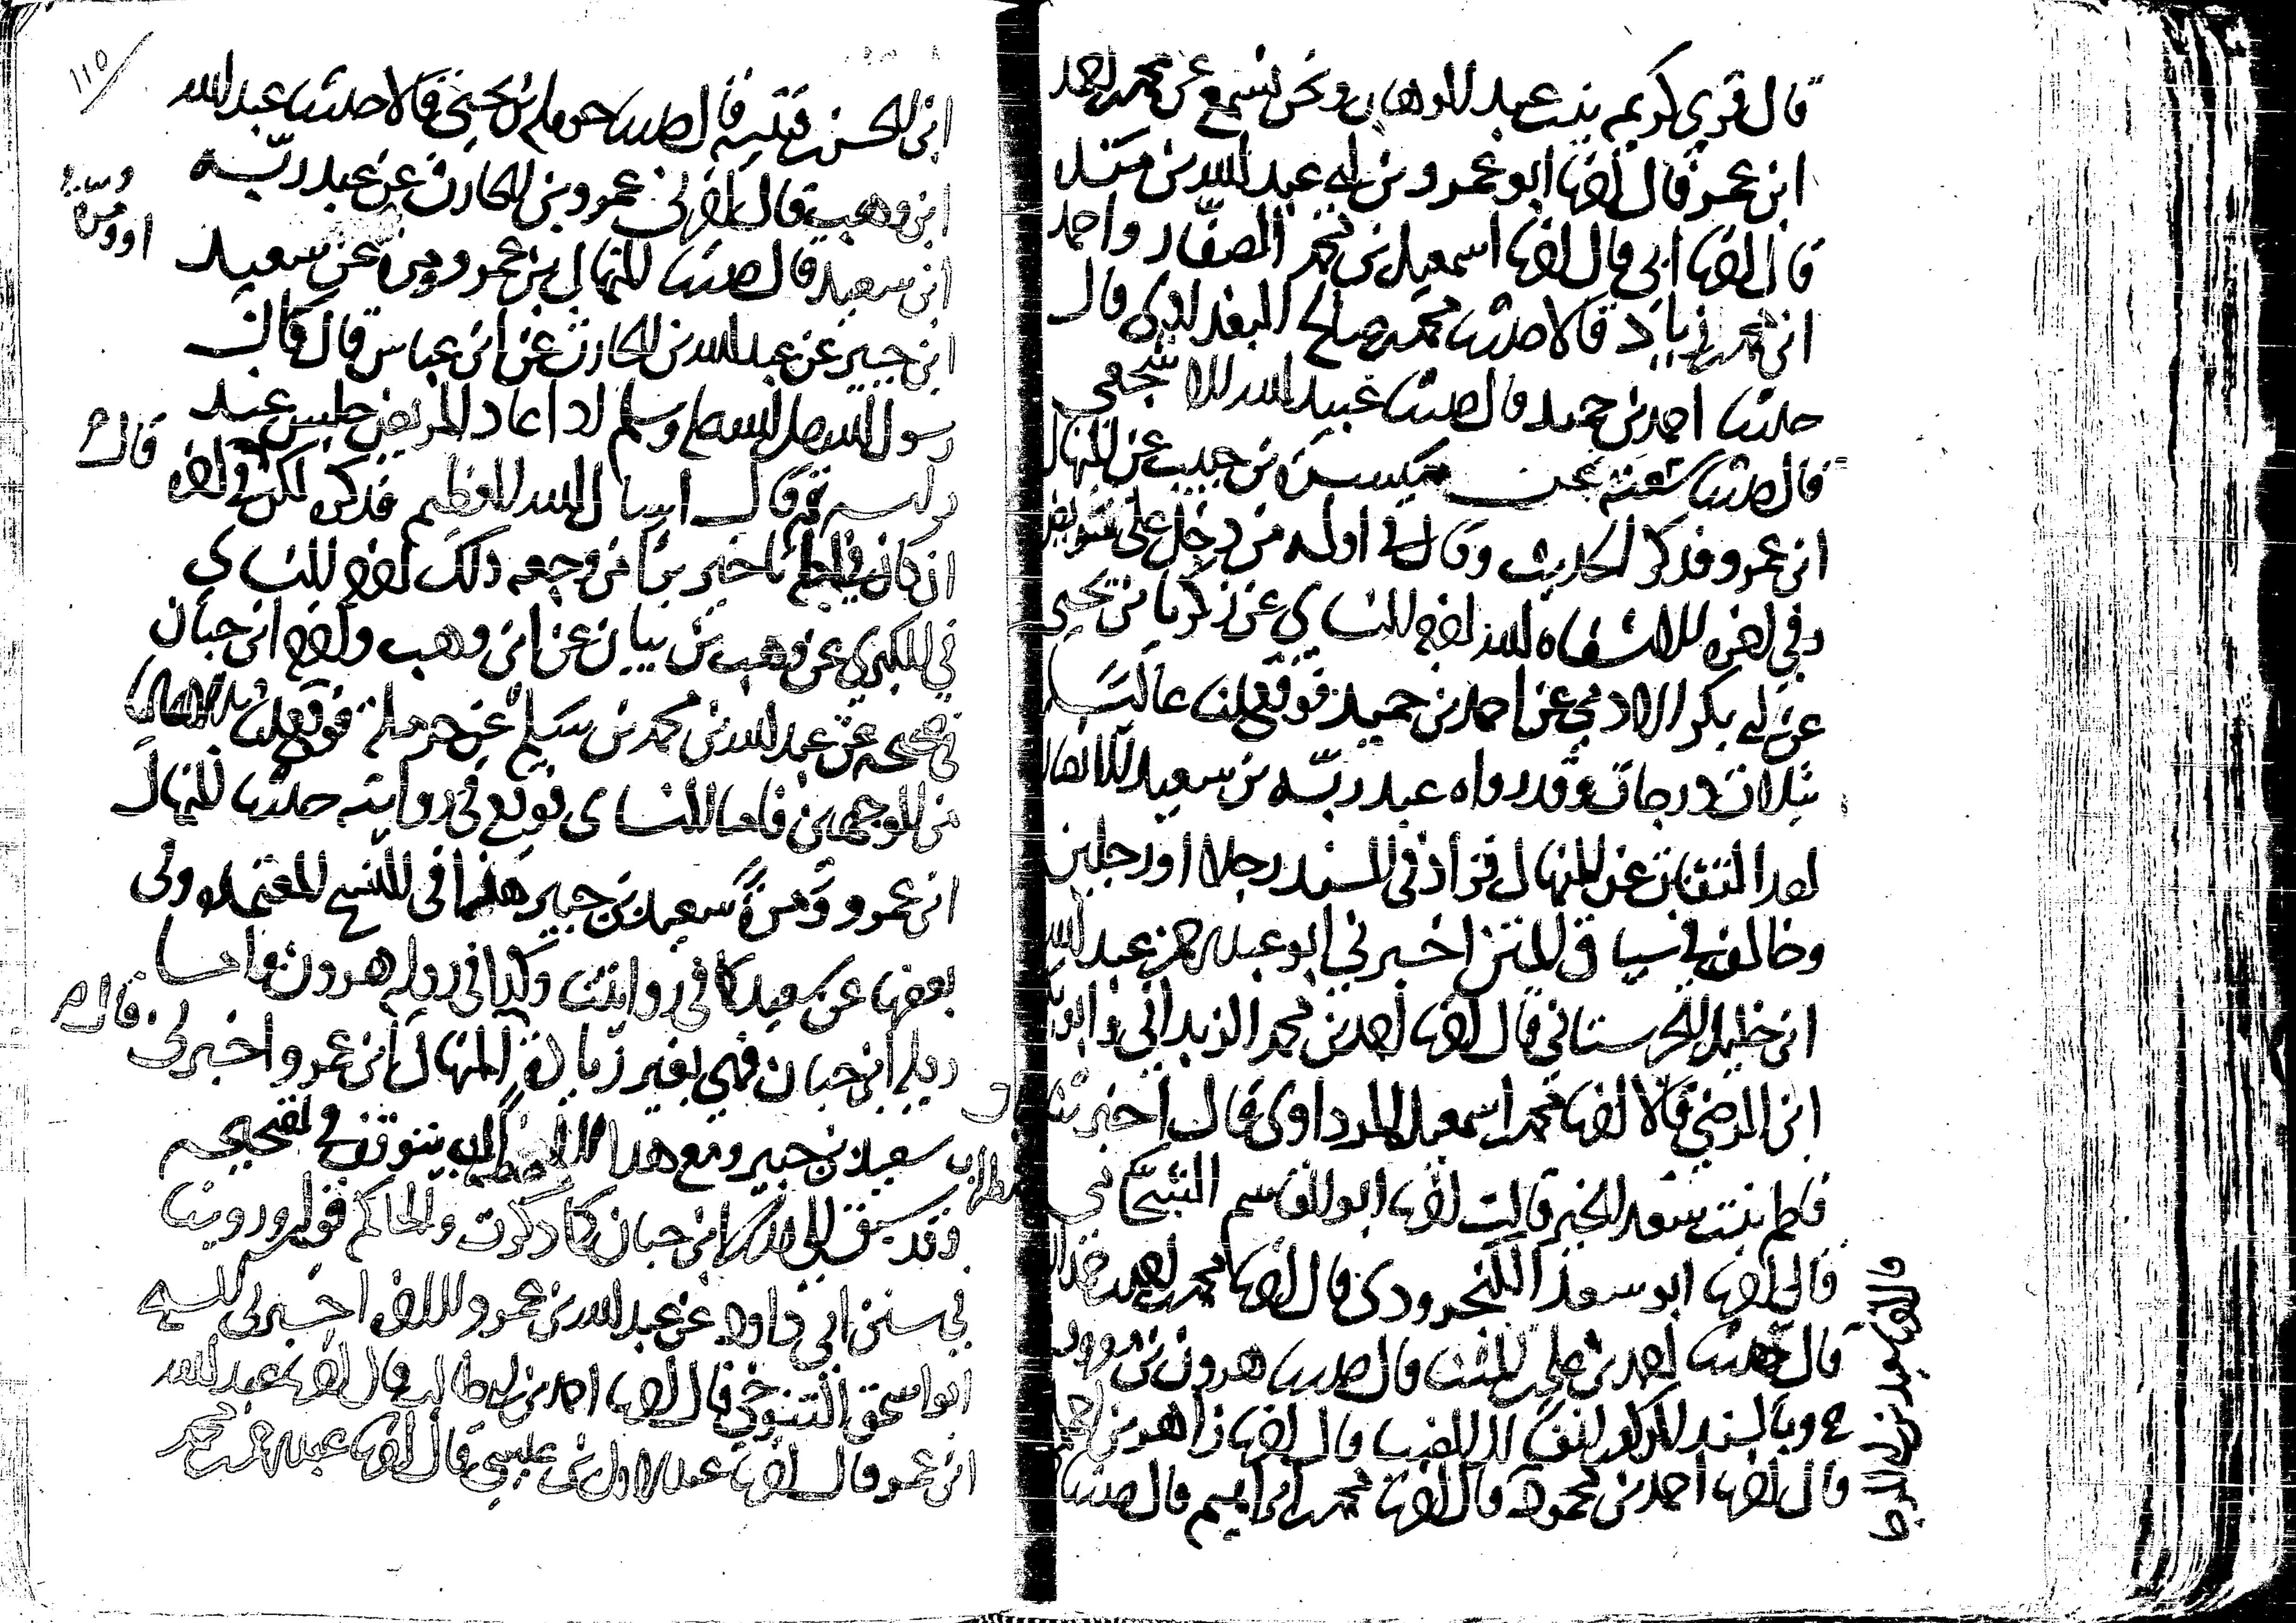 قال قري كريمة بنت عبد الوهاب ونحن نسمع عن محمد بن احمد
ابن عمر قال اخبرنا ابو عمرو بن ابي عبد الله بن منده
قال اخبرنا ابي قال اخبرنا اسمعيل بن محمد الصفار واحمد
ابن محمد بن زياد قالا حدثنا محمد بن صالح البغدادي قال
حدثنا احمد بن حميد قال حدثنا عبيد الله الاشجعي
قال حدثنا شعبة عن ميسرة بن حبيب عن المنهال
ابن عمرو فذكر الحديث وقال في اوله من دخل على مريض
وفي اخره الا شفاه الله اخرجه النساي عن زكريا بن يحيى
عن ابي بكر الادمي عن احمد بن حميد فوقع لنا عاليا
بثلاث درجات وقد رواه عبد ربه بن سعيد الانصاري
احد الثقات عن المنهال فزاد في السند رجلا او رجلين
وخالف في سياق المتن اخبرني ابو عبد الرحمن عبد الله
ابن خليل الحرستاني قال اخبرنا احمد بن محمد الزبداني وابو بكر
ابن الرضي قالا اخبرنا محمد بن اسمعيل المرداوي قال اخبرتنا
فاطمة بنت سعد الخير قالت اخبرنا ابو القاسم الشحامي
قال اخبرنا ابو سعد الكنجرودي قال اخبرنا محمد بن احمد بن حمدان
قال حدثنا احمد بن علي بن المثنى قال حدثنا هرون بن معروف
ح وبالسند المذكور انفا الى الضيا قال اخبرنا زاهر بن احمد
قال اخبرنا سعيد بن ابي الرجا
قال اخبرنا احمد بن محمود قال اخبرنا محمد بن ابراهيم قال حدثنا
١١٥
ابن الحسن بن قتيبة قال حدثنا حرملة بن يحيى قالا حدثنا عبد الله
ابن وهب قال اخبرني عمرو بن الحارث عن عبد ربه
ابن سعيد قال حدثنا المنهال بن عمرو ومرة عن سعيد
ابن جبير عن عبد الله بن الحارث عن ابن عباس قال كان
رسول الله صلى الله عليه وسلم اذا عاد المريض جلس عند
راسه ثم قال اسال الله العظيم فذكره لكن في اخره قال
ان كان في اجله تاخير برا من وجعه ذلك اخرجه النساي
في الكبرى عن وهب بن بيان عن ابن وهب واخرجه ابن حبان
في صحيحه عن عبد الله بن محمد بن سلم عن حرملة فوقع لنا بدلا عاليا
من الوجهين فاما النساي فوقع في روايته حدثنا المنهال
ابن عمرو ومرة سعيد بن جبير هكذا في النسخ المعتمدة وفي
بعضها عن سعيد كما في روايتنا وكذا في رواية هرون واما
رواية ابن حبان فهي بغير زيادة قال المنهال بن عمرو اخبرني
سعيد بن جبير ومع هذا الاضطراب يتوقف في تصحيحه
وقد سبق الى ذلك ابن حبان كما ذكرت والحاكم قوله وروينا
في سنن ابي داود عن عبد الله بن عمرو الى اخره اخبرني الشيخ
ابو اسحق التنوخي قال اخبرنا احمد بن ابي طالب قال اخبرنا عبد الله
ابن عمر قال اخبرنا عبد الاول بن عيسى قال اخبرنا عبد الرحمن بن محمد